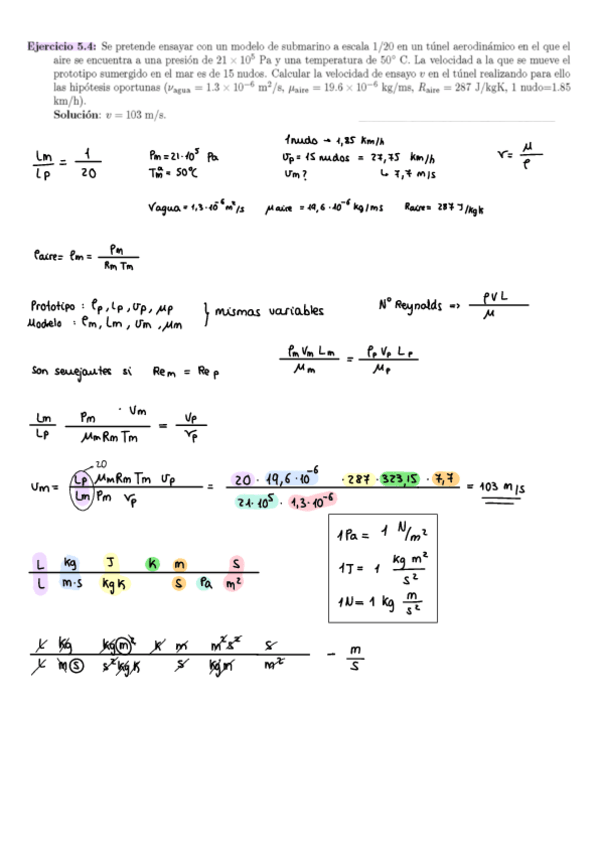 Ejercicio 5.4: Se pretende ensayar con un modelo de submarino a escala 1/20 en un túnel aerodinámico en el que el
aire se encuentra a una presión de 21 × 10⁵ Pa y una temperatura de 50° C. La velocidad a la que se mueve el
prototipo sumergido en el mar es de 15 nudos. Calcular la velocidad de ensayo v en el túnel realizando para ello
las hipótesis oportunas (νagua = 1.3 × 10⁻⁶ m²/s, μaire = 19.6 × 10⁻⁶ kg/ms, Raire = 287 J/kgK, 1 nudo=1.85
km/h).
Solución: v = 103 m/s.
Lm/Lp = 1/20
Pm = 21·10⁵ Pa
Tm = 50ºC
1 nudo → 1,85 km/h
Up = 15 nudos = 27,75 km/h
Um? ↳ 7,7 m/s
ν = μ/ρ
νagua = 1,3·10⁻⁶ m²/s μaire = 19,6·10⁻⁶ kg/ms Raire = 287 J/kgK
ρaire = ρm = Pm / Rm Tm
Prototipo : ρp, Lp, Up, μp
Modelo : ρm, Lm, Um, μm
} mismas variables
Nº Reynolds => ρVL / μ
Son semejantes si Rem = Rep
ρm Vm Lm / μm = ρp Vp Lp / μp
Lm/Lp Pm · Um / μm Rm Tm = Up/νp
20
Um = Lp μm Rm Tm Up / Lm Pm νp = 20 · 19,6·10⁻⁶ · 287 · 323,15 · 7,7 / 21·10⁵ · 1,3·10⁻⁶ = 103 m/s
1Pa = 1 N/m²
1J = 1 kg m²/s²
1N = 1 kg m/s²
L kg J K m S
L m·s kg K S Pa m²
L kg kg m² K m m² s² s
L m s s² kg K s kg m m²
- m/s